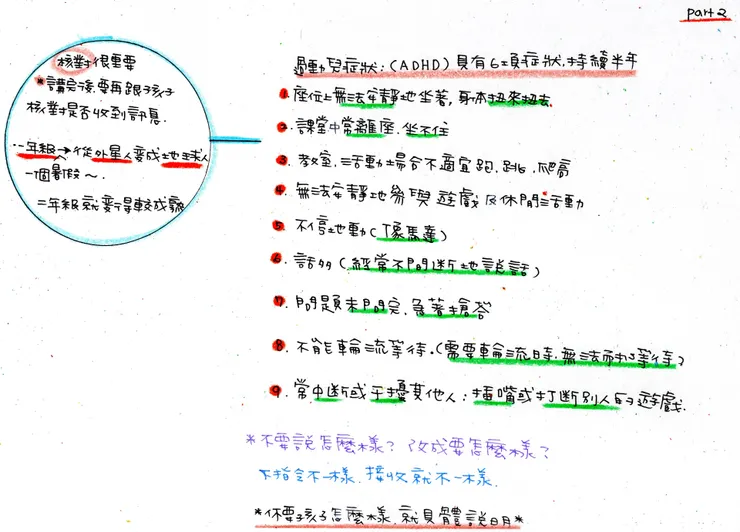 part 2
核對很重要
*講完後要再跟孩子
核對是否收到訊息.
一年級→從外星人變成地球人
一個暑假~.
二年級就要得較成熟
過動兒症狀:(ADHD)具有6±項症狀.持續半年
1. 座位上無法安靜地坐著,身体扭來扭去.
2. 課堂中常離座.坐不住
3. 教室.活動場合不適宜跑.跳.爬高
4. 無法安靜地參與遊戲及休閒活動
5. 不停地動(像馬達)
6. 話多(經常不間断地說話)
7. 問題未問完.急著搶答
8. 不能輪流等待.(需要輪流時.無法耐心等待)
9. 常中断或干擾其他人:插嘴或打断別人的遊戲.
*不要說怎麼樣?改成要怎麼樣?
下指令不一樣.接收就不一樣.
*你要孩子怎麼樣.就具體說明*